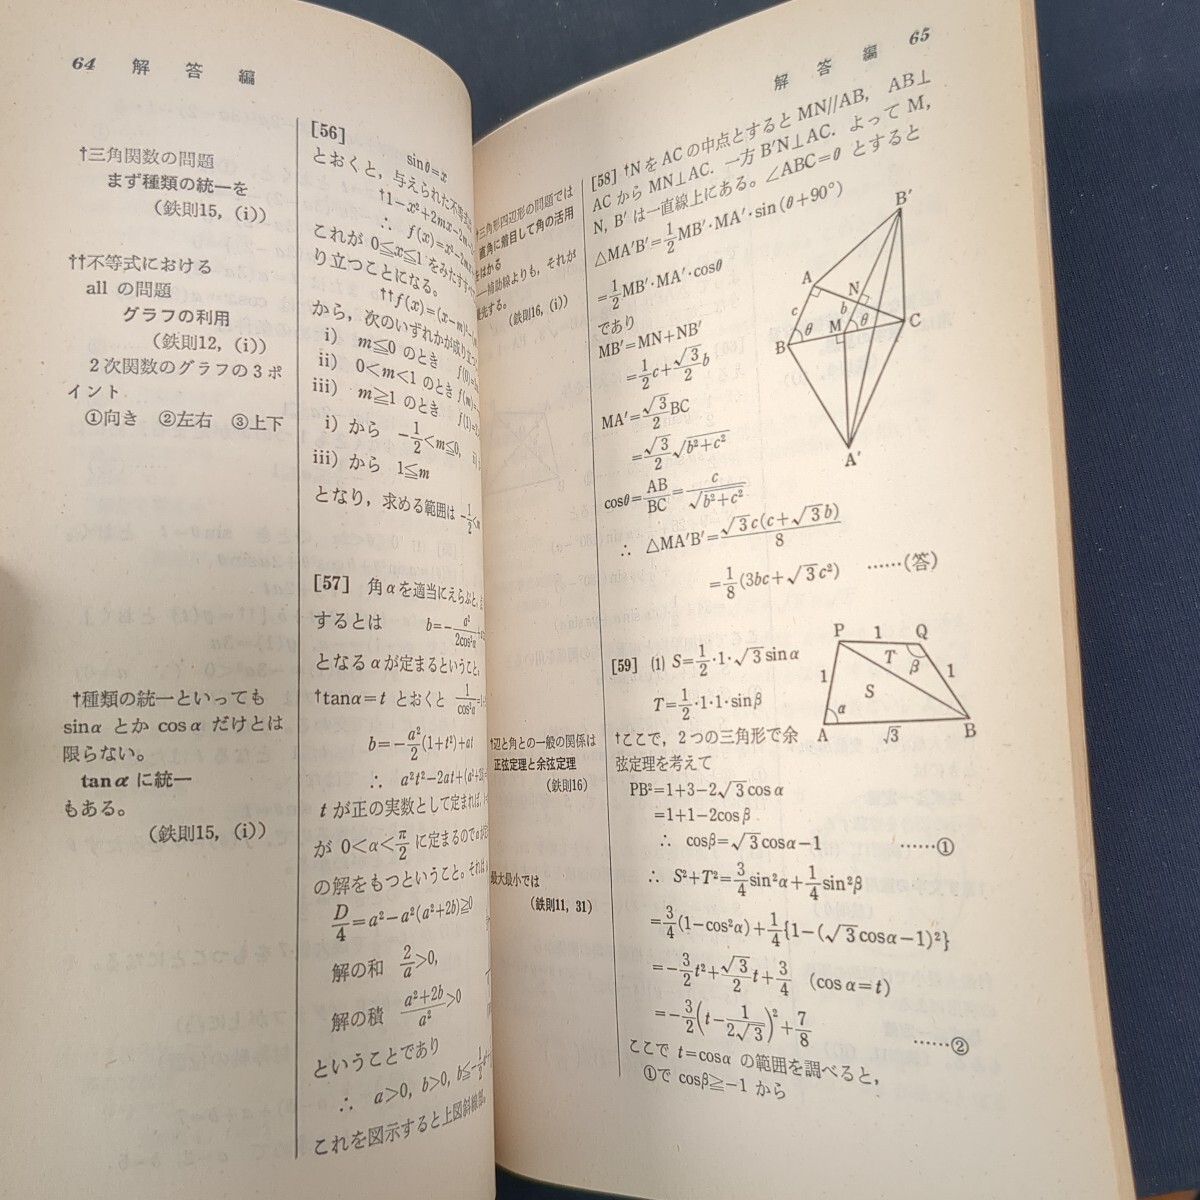 64 解答編
†三角関数の問題
まず種類の統一を
(鉄則15, (i))
††不等式における
all の問題
グラフの利用
(鉄則12, (i))
2次関数のグラフの3ポ
イント
①向き ②左右 ③上下
†種類の統一といっても
sinα とか cosα だけとは
限らない。
tanα に統一
もある。
(鉄則15, (i))
[56]
sinθ=x
とおくと, 与えられた不等式は
†1-x²+2mx-2m
∴ f(x)=x²-2mx
これが 0≦x≦1 をみたすすべ
り立つことになる。
††f(x)=(x-m)²-
から, 次のいずれかが成り立つ
i) m≦0 のとき f(0)=
ii) 0<m<1 のとき f(m)=
iii) m≧1 のとき f(1)=
i) から -1/2<m≦0,
iii) から 1≦m
となり, 求める範囲は -1/2<m
[57] 角αを適当にえらぶと,
するとは b=-a²/2cos²α+
となるαが定まるということ。
†tanα=t とおくと 1/cos²α=
b=-a²/2(1+t²)+at
∴ a²t²-2at+(a²+2b)=
t が正の実数として定まれば,
が 0<α<π/2 に定まるので
の解をもつということ。それは
D/4=a²-a²(a²+2b)≧0
解の和 2/a>0,
解の積 (a²+2b)/a²>0
ということであり
∴ a>0, b>0, b≦-1/2
これを図示すると上図斜線部。
解答編 65
†三角形四辺形の問題では
直角に着目して角の活用
をはかる
——補助線よりも, それが
優先する。
(鉄則16, (i))
†辺と角との一般の関係は
正弦定理と余弦定理
(鉄則16)
最大最小では
(鉄則11, 31)
[58] †NをACの中点とするとMN//AB, AB⊥
AC から MN⊥AC. 一方 B′N⊥AC. よって M,
N, B′ は一直線上にある。∠ABC=θ とすると
△MA′B′=1/2MB′·MA′·sin(θ+90°)
=1/2MB′·MA′·cosθ
であり
MB′=MN+NB′
=1/2c+√3/2b
MA′=√3/2BC
=√3/2√(b²+c²)
cosθ=AB/BC=c/√(b²+c²)
∴ △MA′B′=√3c(c+√3b)/8
=1/8(3bc+√3c²) ……(答)
B′
A
N
c
b
M
θ
θ
B
C
A′
[59] (1) S=1/2·1·√3 sinα
T=1/2·1·1·sinβ
†ここで, 2つの三角形で余
弦定理を考えて
PB²=1+3-2√3cosα
=1+1-2cosβ
∴ cosβ=√3cosα-1 ……①
∴ S²+T²=3/4sin²α+1/4sin²β
=3/4(1-cos²α)+1/4{1-(√3cosα-1)²}
=-3/2t²+√3/2t+3/4 (cosα=t)
=-3/2(t-1/2√3)²+7/8 ……②
ここで t=cosα の範囲を調べると,
①で cosβ≧-1 から
P 1 Q
T β
1 S 1
α
A √3 B